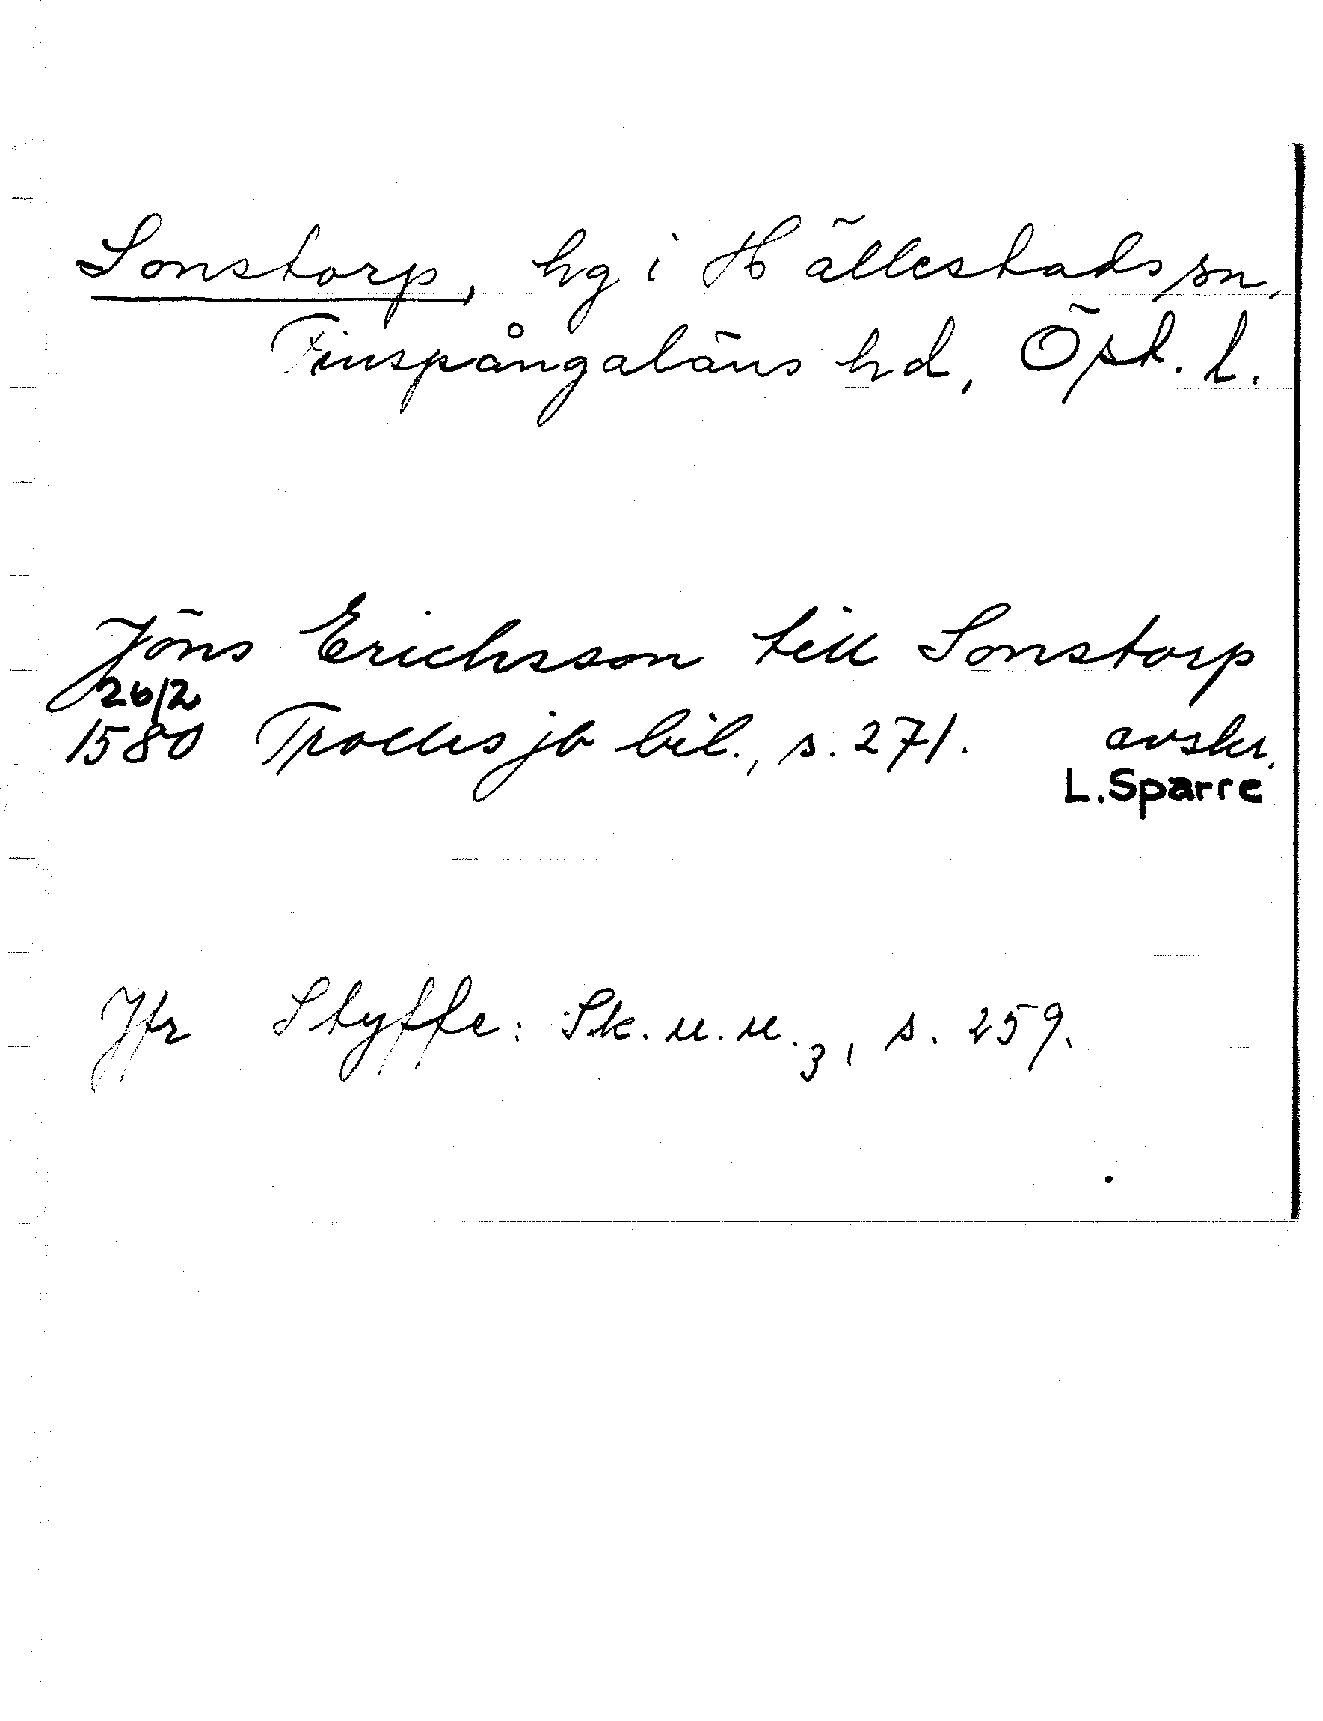 Sonstorp, hg i Hällestads sn,
Finspångaläns hd, Öst. l.
Jöns Erichsson till Sonstorp
26/2
1580 Trolles jb bil., s. 271. avskr.
L. Sparre
Jfr Styffe: Sk. u. u. 3, s. 259.